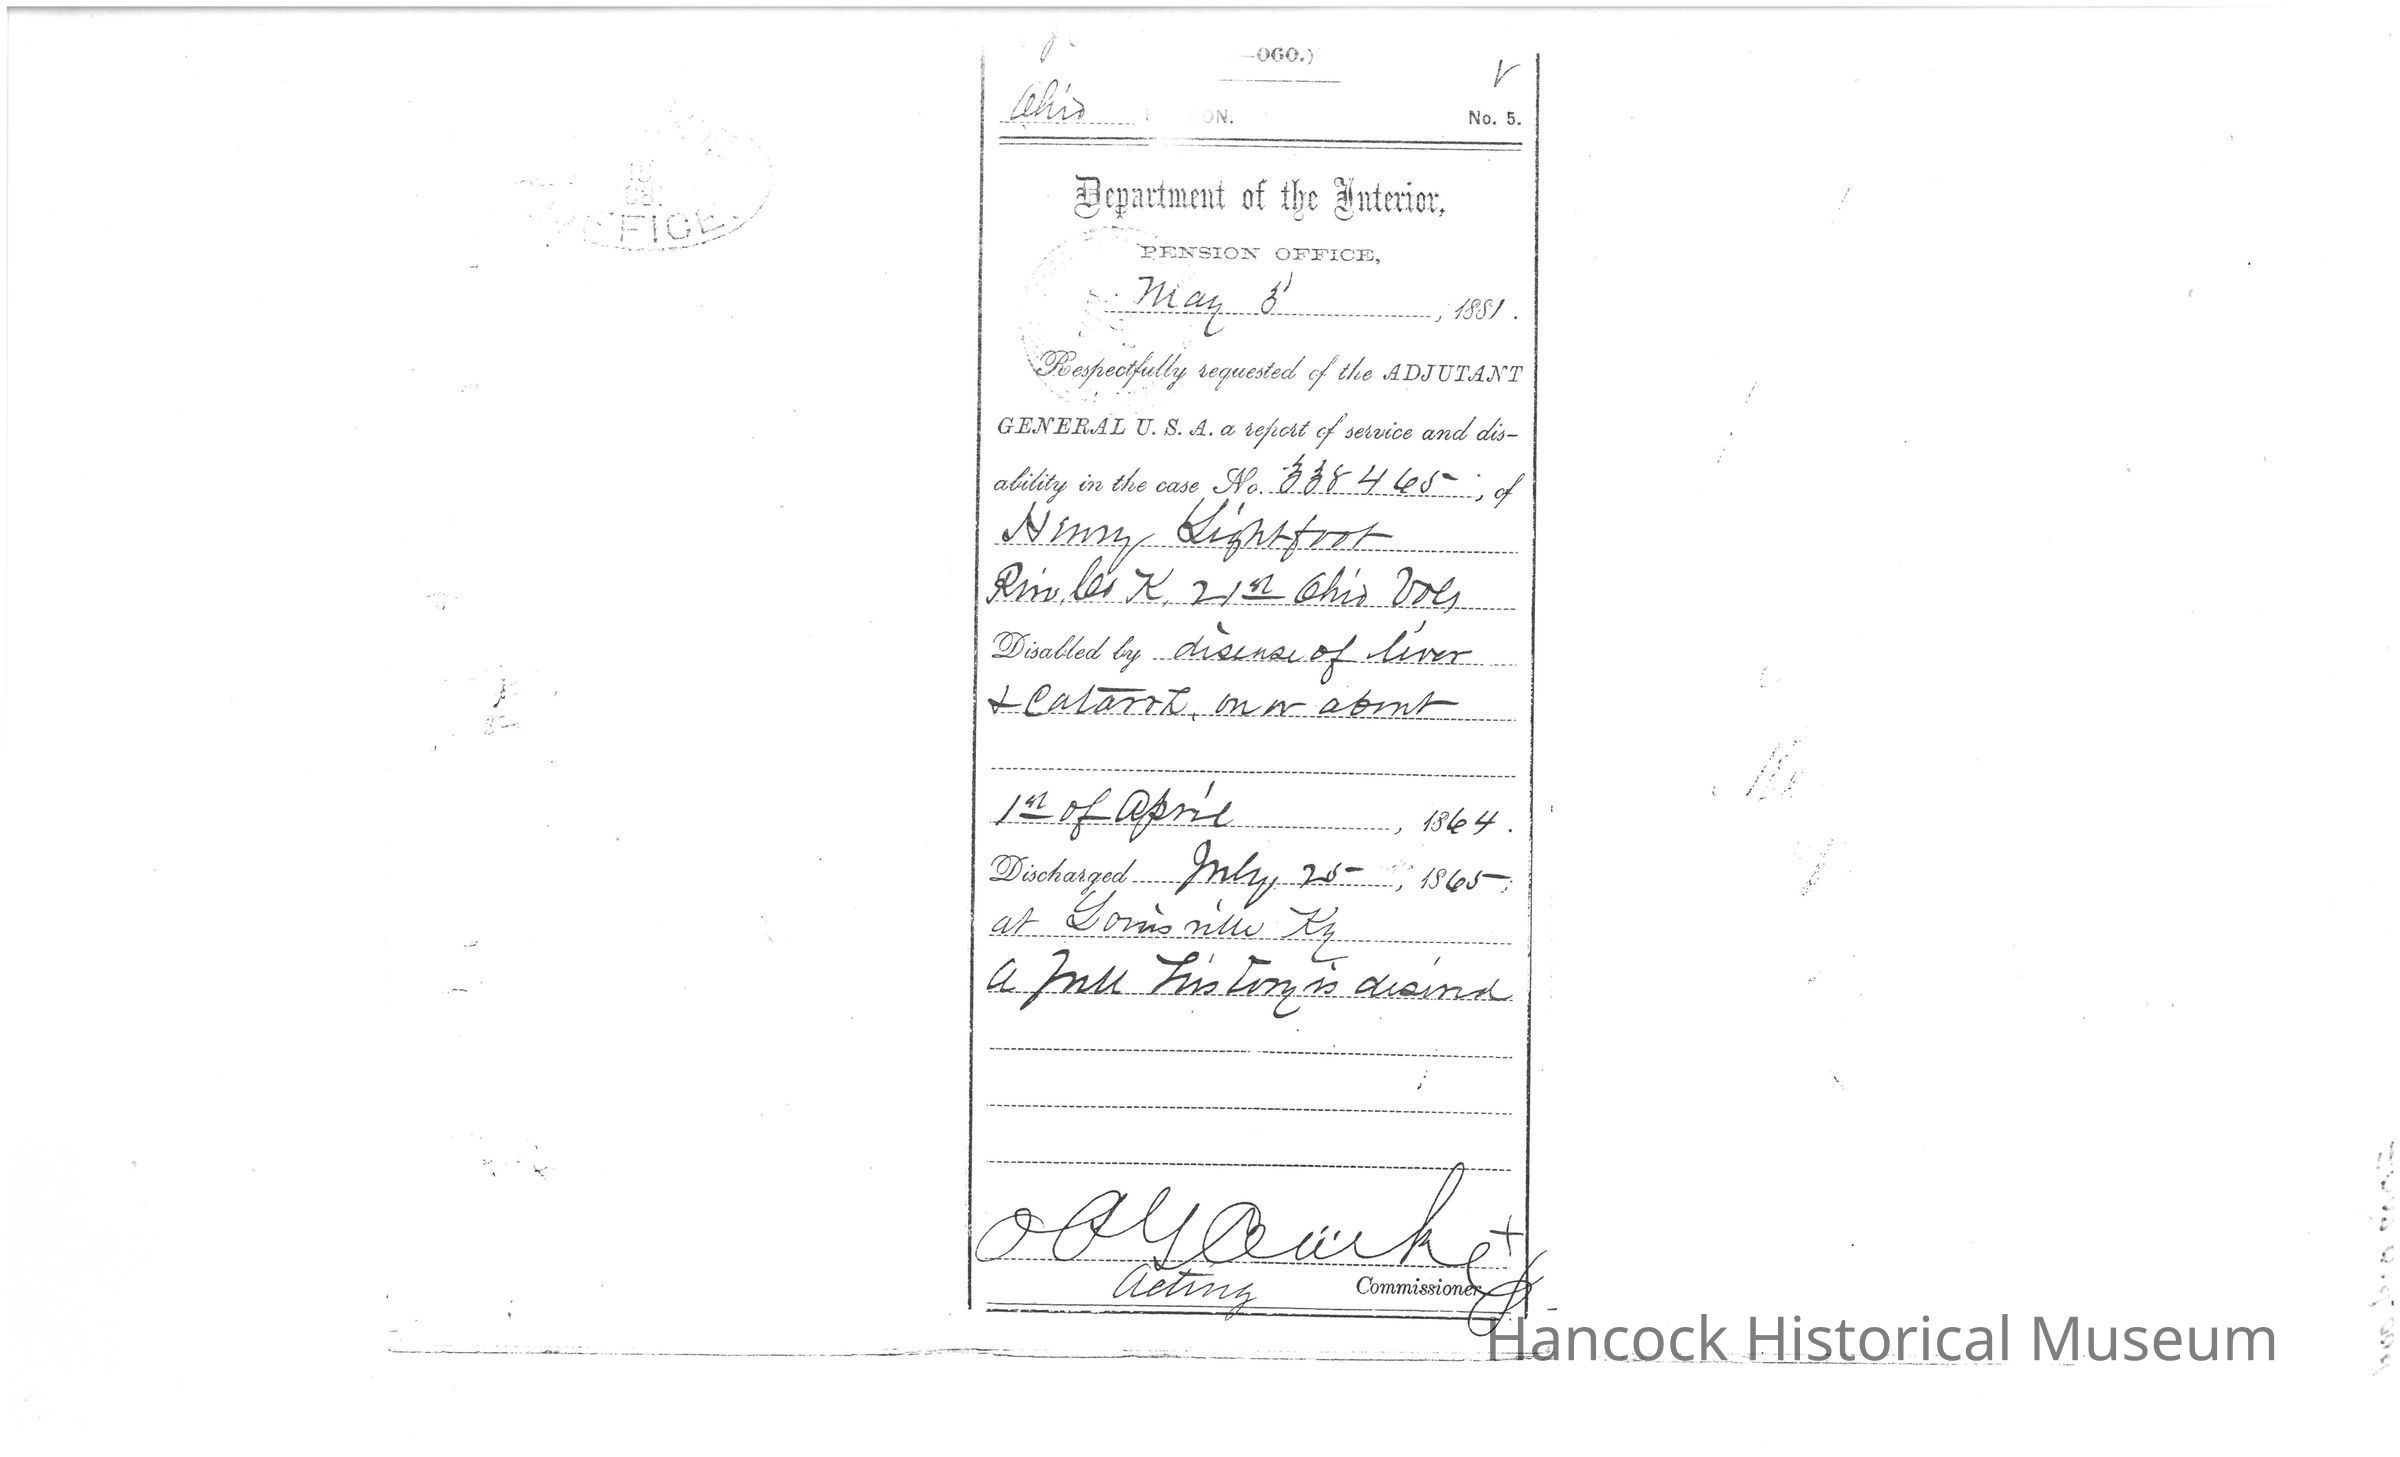 -060.)
Ohio
No. 5.
Department of the Interior,
PENSION OFFICE,
May 3', 1881.
Respectfully requested of the ADJUTANT
GENERAL U. S. A. a report of service and dis-
ability in the case No. 338465; of
Henry Lightfoot
Priv. Co K. 21st Ohio Vols
Disabled by disease of liver
& Catarrh, on or about
1st of April, 1864.
Discharged July, 25, 1865;
at Louisville Ky
A full history is desired
Acting Commissioner
Hancock Historical Museum